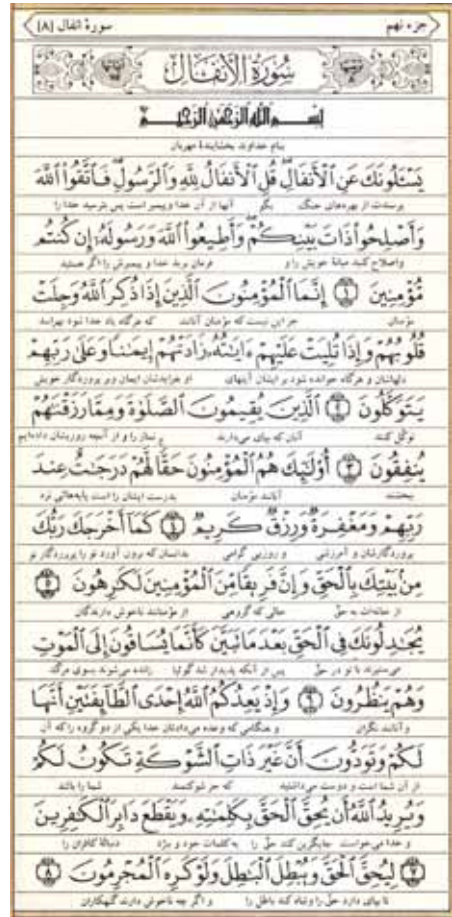 جزء نهم
سورة انفال (٨)
سُورَةُ الْأَنفَالِ
بِسْمِ اللَّهِ الرَّحْمَٰنِ الرَّحِيمِ
بنام خداوند بخشایندهٔ مهربان
يَسْـَٔلُونَكَ عَنِ ٱلْأَنفَالِ قُلِ ٱلْأَنفَالُ لِلَّهِ وَٱلرَّسُولِ فَٱتَّقُوا۟ ٱللَّهَ
پرسندت از بهره‌های جنگ بگو آنها از آن خدا و پیمبر است پس بترسید خدا را
وَأَصْلِحُوا۟ ذَاتَ بَيْنِكُمْ وَأَطِيعُوا۟ ٱللَّهَ وَرَسُولَهُۥٓ إِن كُنتُم
واصلاح کنید میانهٔ خویش را و فرمان برید خدا و پیمبرش را اگر هستید
مُّؤْمِنِينَ ﴿١﴾ إِنَّمَا ٱلْمُؤْمِنُونَ ٱلَّذِينَ إِذَا ذُكِرَ ٱللَّهُ وَجِلَتْ
مؤمنان جز این نیست که مؤمنان آنانند که هرگاه یاد خدا شود بهراسد
قُلُوبُهُمْ وَإِذَا تُلِيَتْ عَلَيْهِمْ ءَايَـٰتُهُۥ زَادَتْهُمْ إِيمَـٰنًا وَعَلَىٰ رَبِّهِمْ
دلهاشان و هرگاه خوانده شود بر ایشان آیتهای او بیفزایدشان ایمان و بر پروردگار خویش
يَتَوَكَّلُونَ ﴿٢﴾ ٱلَّذِينَ يُقِيمُونَ ٱلصَّلَوٰةَ وَمِمَّا رَزَقْنَـٰهُمْ
توکّل کنند آنان که بپای می‌دارند نماز را و از آنچه روزیشان داده‌ایم
يُنفِقُونَ ﴿٣﴾ أُو۟لَـٰٓئِكَ هُمُ ٱلْمُؤْمِنُونَ حَقًّا لَّهُمْ دَرَجَـٰتٌ عِندَ
ببخشند آنانند مؤمنان بدرست ایشان را است پایه‌هائی نزد
رَبِّهِمْ وَمَغْفِرَةٌ وَرِزْقٌ كَرِيمٌ ﴿٤﴾ كَمَآ أَخْرَجَكَ رَبُّكَ
پروردگارشان و آمرزشی و روزیی گرامی بدانسان که برون آورد تو را پروردگار تو
مِنۢ بَيْتِكَ بِٱلْحَقِّ وَإِنَّ فَرِيقًا مِّنَ ٱلْمُؤْمِنِينَ لَكَـٰرِهُونَ ﴿٥﴾
از خانه‌ات به حقّ حالی که گروهی از مؤمنانند ناخوش دارندگان
يُجَـٰدِلُونَكَ فِى ٱلْحَقِّ بَعْدَ مَا تَبَيَّنَ كَأَنَّمَا يُسَاقُونَ إِلَى ٱلْمَوْتِ
می‌ستیزند با تو در حقّ پس از آنکه پدیدار شد گوئیا رانده می‌شوند بسوی مرگ
وَهُمْ يَنظُرُونَ ﴿٦﴾ وَإِذْ يَعِدُكُمُ ٱللَّهُ إِحْدَى ٱلطَّآئِفَتَيْنِ أَنَّهَا
و آنانند نگران و هنگامی که وعده می‌دادتان خدا یکی از دو گروه را که آن
لَكُمْ وَتَوَدُّونَ أَنَّ غَيْرَ ذَاتِ ٱلشَّوْكَةِ تَكُونُ لَكُمْ
از آن شما است و دوست می‌داشتید که جز شوکتمند شما را باشد
وَيُرِيدُ ٱللَّهُ أَن يُحِقَّ ٱلْحَقَّ بِكَلِمَـٰتِهِۦ وَيَقْطَعَ دَابِرَ ٱلْكَـٰفِرِينَ
و خدا می‌خواست جایگزین کند حقّ را به کلمات خود و ببرّد دنبالهٔ کافران را
﴿٧﴾ لِيُحِقَّ ٱلْحَقَّ وَيُبْطِلَ ٱلْبَـٰطِلَ وَلَوْ كَرِهَ ٱلْمُجْرِمُونَ ﴿٨﴾
تا بپای دارد حقّ را و تباه کند باطل را و اگر چه ناخوش دارند گنهکاران